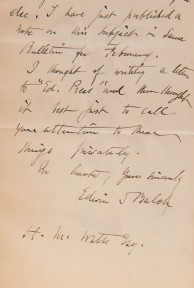 else. I have just published a
note on this subject in same
Bulletin for February.
I thought of writing a letter
to "Ed. Rees" and then thought
it best just to call
your attention to these
things privately.
In haste, Yours sincerely
Edwin S Balch
H. Mc Watts Esq.